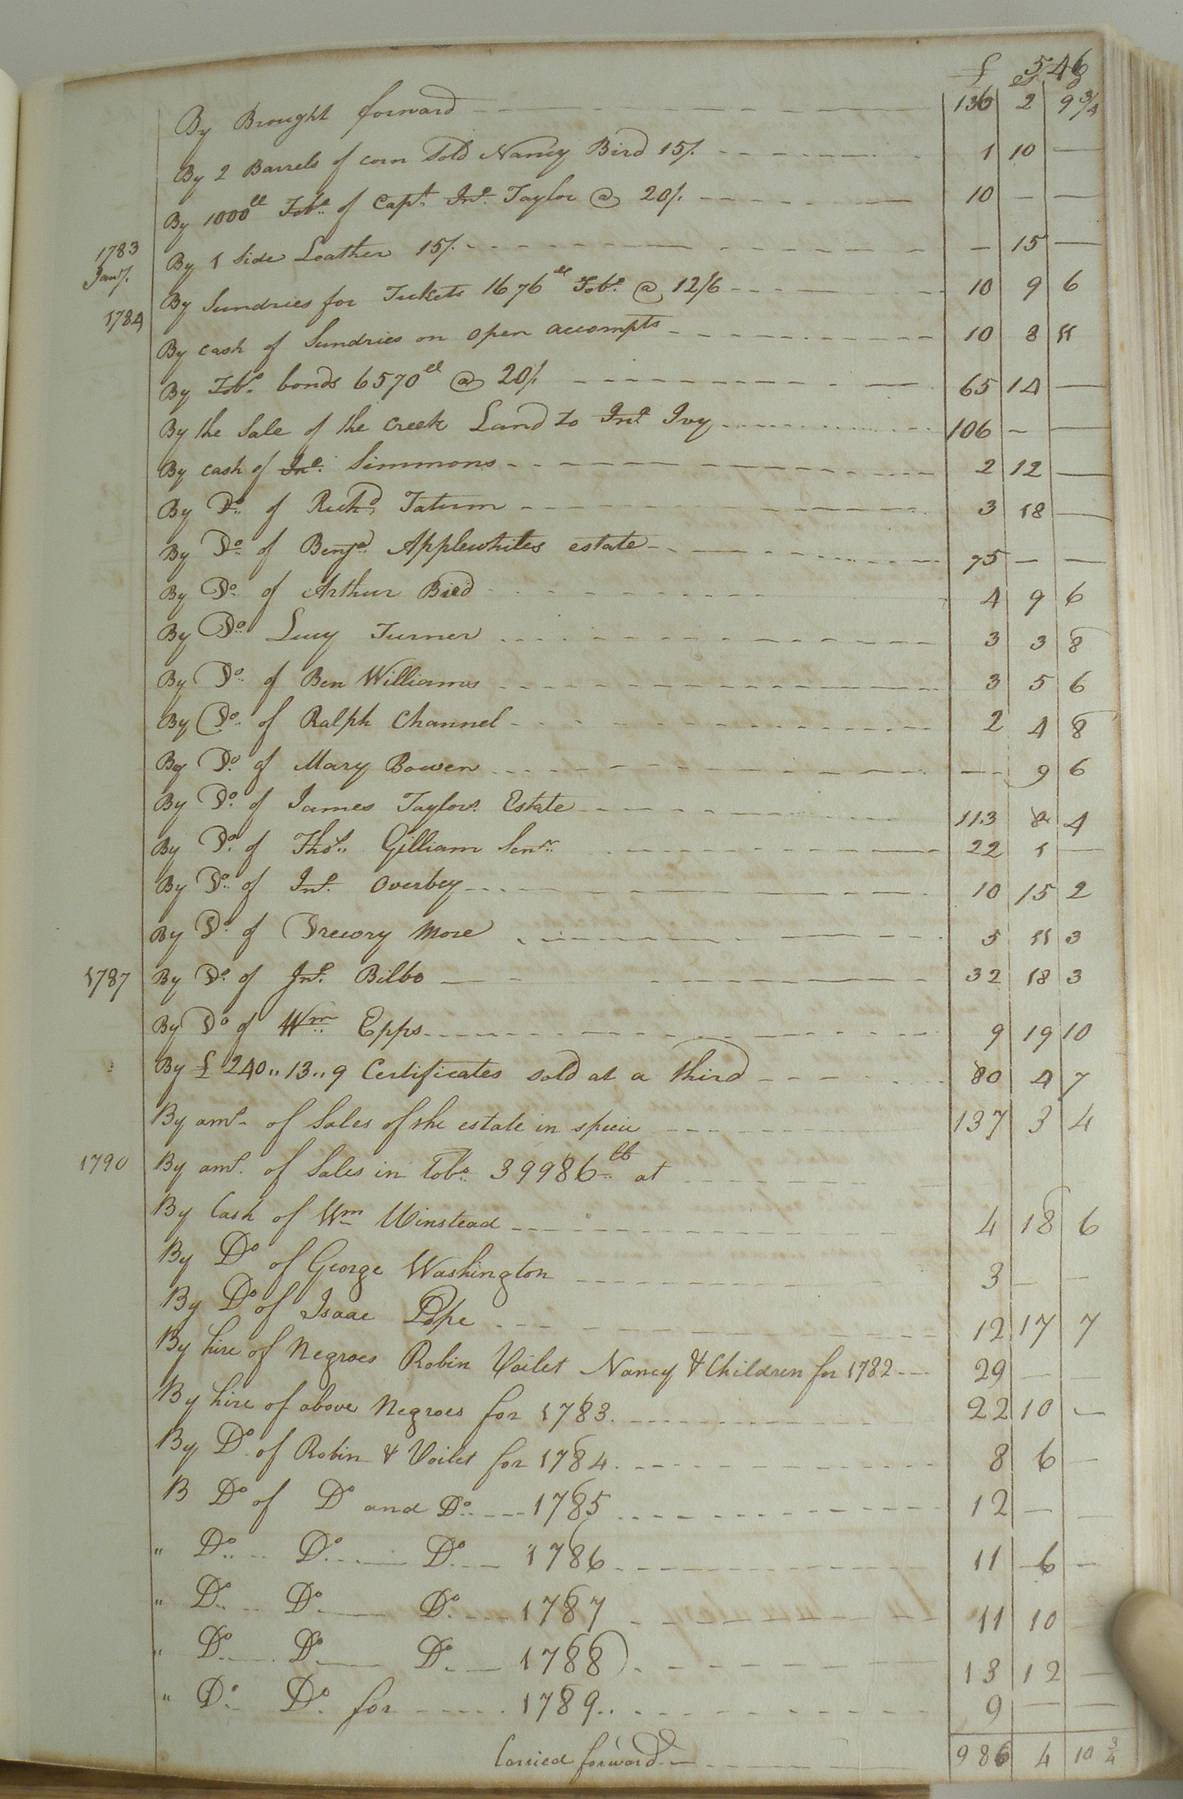 546
£ S d
By Brought forward 136 2 9 3/4
By 2 Barrels of corn Sold Nancy Bird 15/. 1 10 —
By 1000lb Tobo. of Capt. Jno. Taylor @ 20/. 10 — —
1783 Jany. By 1 Side Leather 15/. — 15 —
By Sundries for Tickets 1676lb Tobo. @ 12/6 10 9 6
1784 By cash of Sundries on open accompts 10 8 11
By Tobo. bonds 6570lb @ 20/. 65 14 —
By the Sale of the creek Land to Jno. Ivy 106 — —
By cash of Jno. Simmons 2 12 —
By Do. of Richd. Tatum 3 18 —
By Do. of Benja. Applewhites estate 75 — —
By Do. of Arthur Bird 4 9 6
By Do. Lucy Turner 3 3 8
By Do. of Ben Williams 3 5 6
By Do. of Ralph Channel 2 4 8
By Do. of Mary Bowen — 9 6
By Do. of James Taylors. Estate 113 8 4
By Do. of Thos. Gilliam Senr. 22 1 —
By Do. of Jno. Overbey 10 15 2
By Do. of Drewry More 5 11 3
1787 By Do. of Jno. Bilbo 32 18 3
By Do. of Wm. Epps 9 19 10
By £ 240,,13,,9 Certificates sold at a third 80 4 7
By amt. of Sales of the estate in specie 137 3 4
1790 By amt. of Sales in Tobo. 39986lb at
By Cash of Wm Winstead 4 18 6
By Do of George Washington 3 — —
By Do of Isaac Pope 12 17 7
By hire of Negroes Robin Voilet Nancy & Children for 1782 29 — —
By hire of above Negroes for 1783. 22 10 —
By Do. of Robin & Voilet for 1784. 8 6 —
B Do of Do and Do. 1785 12 — —
" Do. Do. Do. 1786 11 6 —
" Do. Do. Do. 1787 11 10
" Do. Do. Do. 1788 13 12 —
" Do. Do. for 1789.. 9 — —
Carried forward 986 4 10 3/4